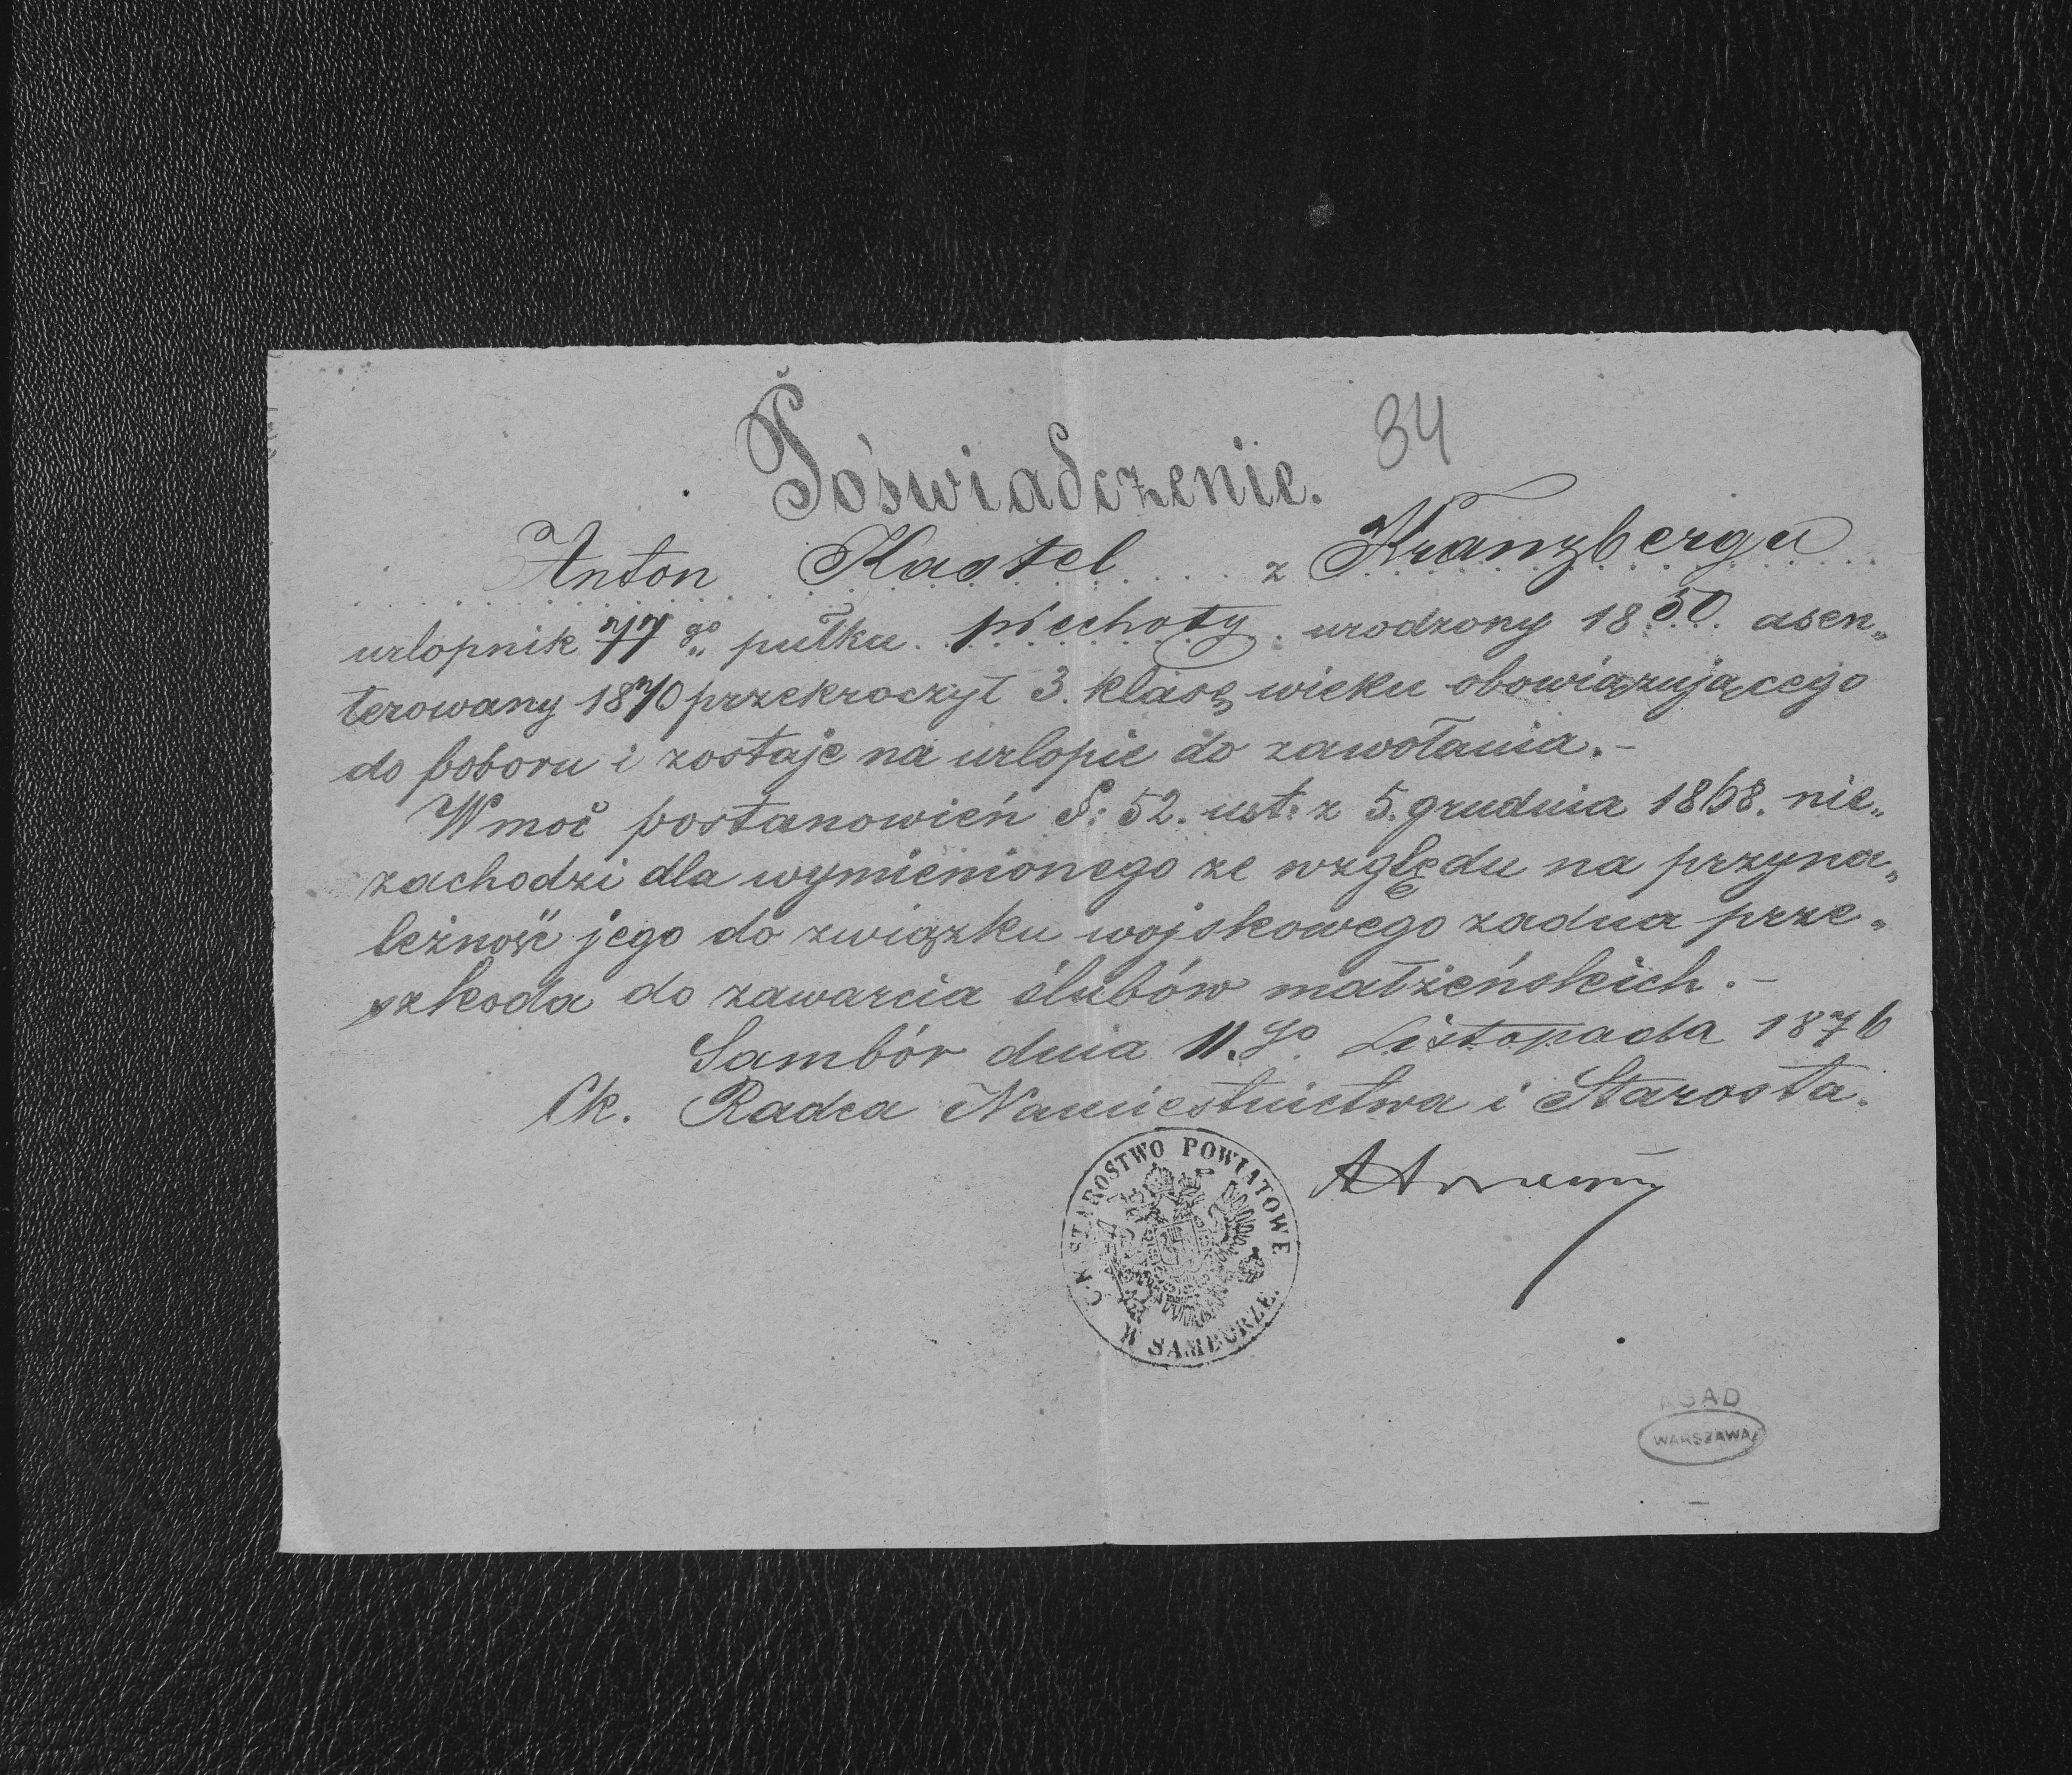 34
Poświadczenie.
Anton Kastel z Kranzbergu
urlopnik 77go pułku piechoty urodzony 1850. asen„
terowany 1870 przekroczył 3. klasę wieku obowiązującego
do poboru i zostaje na urlopie do zawołania.-
W moc postanowień §: 52. ust: z 5. grudnia 1868. nie„
zachodzi dla wymienionego ze względu na przyna„
leżność jego do związku wojskowego żadna prze„
szkoda do zawarcia ślubów małżeńskich.-
Sambór dnia 11.go Listopada 1876
Ck. Radca Namiestnictwa i Starosta.
C. K. STAROSTWO POWIATOWE
W SAMBORZE.
AGAD
WARSZAWA